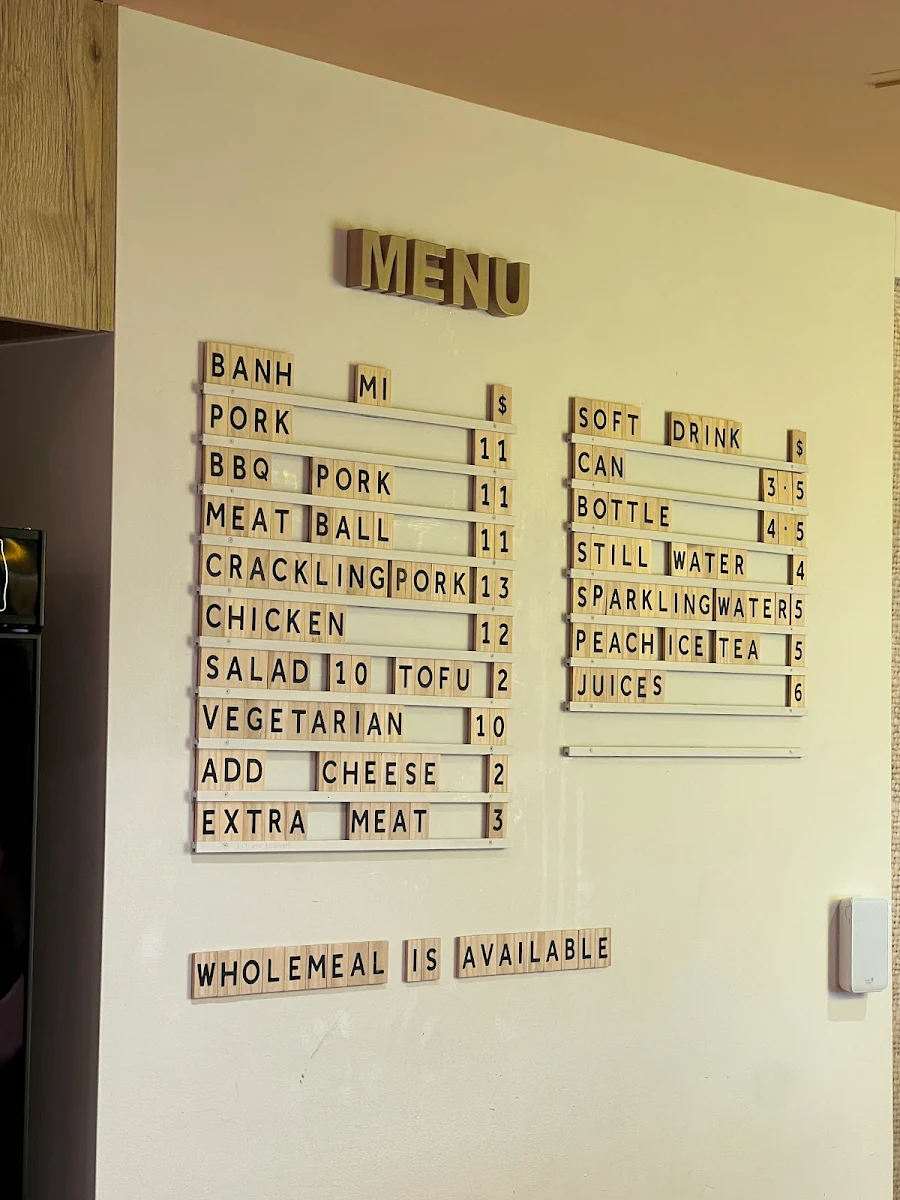 MENU
BANH MI $
PORK 11
BBQ PORK 11
MEAT BALL 11
CRACKLING PORK 13
CHICKEN 12
SALAD 10 TOFU 2
VEGETARIAN 10
ADD CHEESE 2
EXTRA MEAT 3
SOFT DRINK $
CAN 3·5
BOTTLE 4·5
STILL WATER 4
SPARKLING WATER 5
PEACH ICE TEA 5
JUICES 6
WHOLEMEAL IS AVAILABLE